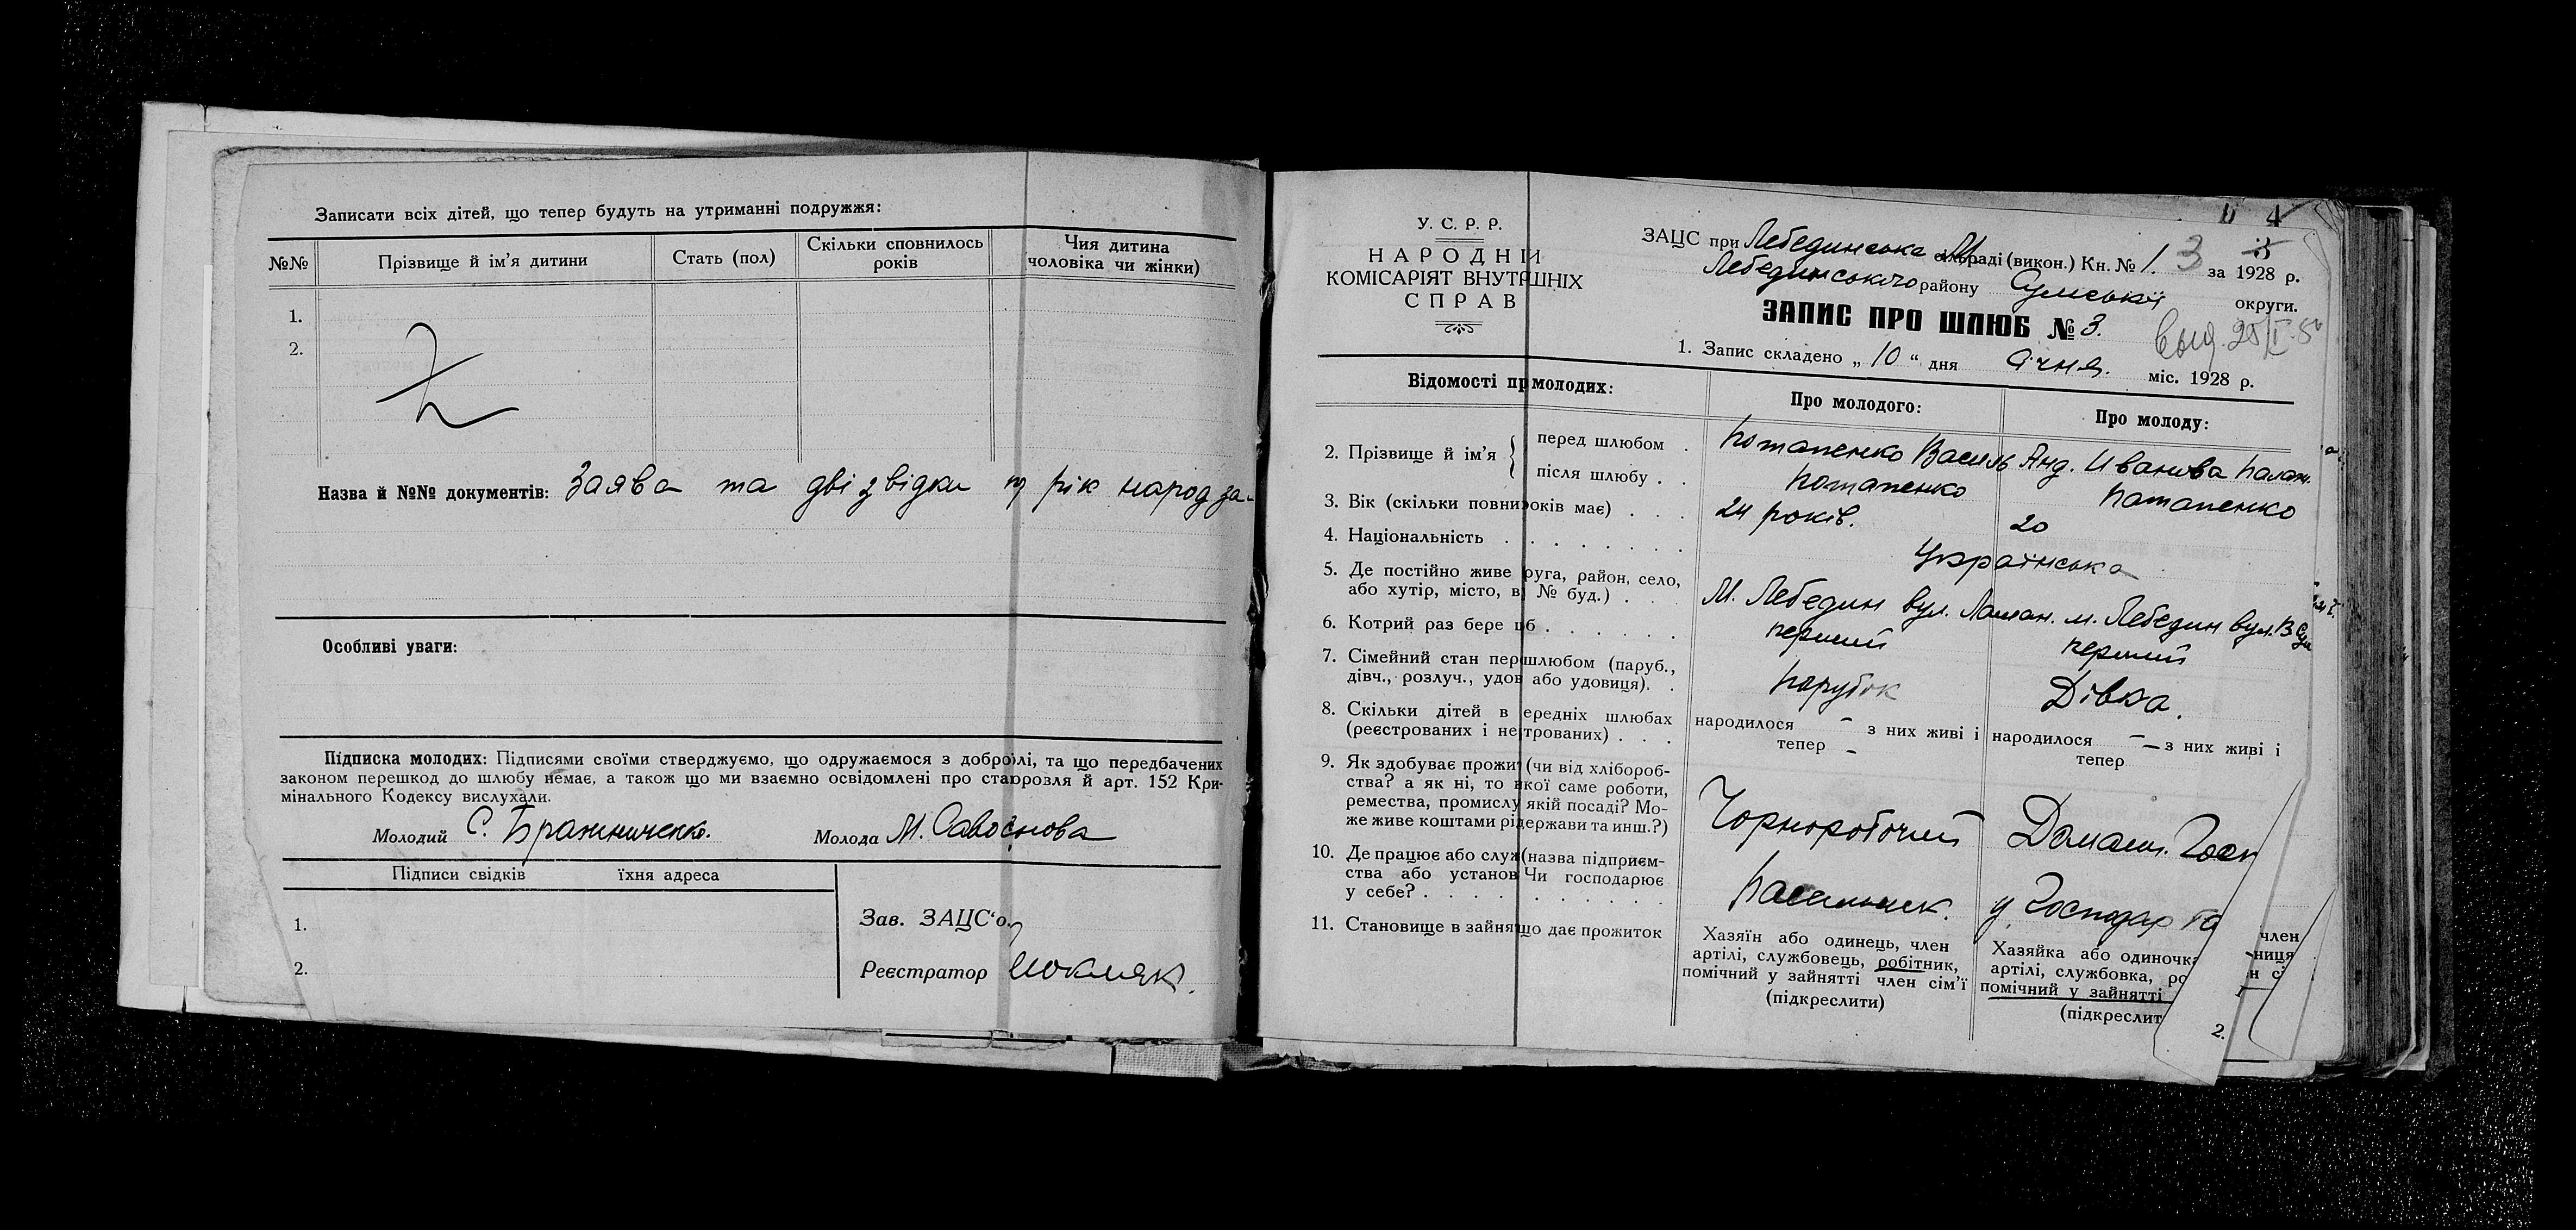 Записати всіх дітей, що тепер будуть на утриманні подружжя:
№№ Прізвище й ім'я дитини Стать (пол) Скільки сповнилось років Чия дитина чоловіка чи жінки)
1.
2.
Назва й №№ документів: Заява та дві звідки рік народ за-
Особливі уваги:
Підписка молодих: Підписями своїми стверджуємо, що одружаємося з добролі, та що передбачених
законом перешкод до шлюбу немає, а також що ми взаємно освідомлені про ста розля й арт. 152 Кри-
мінального Кодексу вислухали.
Молодий С. Бражниченко. Молода М.
Підписи свідків їхня адреса
1.
2.
Зав. ЗАЦС'о
Реєстратор
4
У. С. Р. Р.
НАРОДНІЙ
КОМІСАРІЯТ ВНУТРШНІХ
СПРАВ
ЗАЦС при Лебединська раді (викон.) Кн. № 1. 3 за 1928 р.
Лебединського району Сумської округи.
ЗАПИС ПРО ШЛЮБ № 3.
1. Запис складено „ 10 “ дня січня. міс. 1928 р.
Відомості пр молодих: Про молодого: Про молоду:
2. Прізвище й ім'я { перед шлюбом . Потапенко Василь Анд. Иванова Палаж.
після шлюбу . . Потапенко Потапенко
3. Вік (скільки повни років має) . . . 24 років. 20
4. Національність . . . . . . . . Українська
5. Де постійно живе руга, район, село,
або хутір, місто, в № буд.) . . . М. Лебедин вул. м. Лебедин вул.
6. Котрий раз бере б . . . . . . перший перший
7. Сімейний стан пер шлюбом (паруб.,
дівч., розлуч., удов або удовиця). . Парубок Дівка.
8. Скільки дітей в ередніх шлюбах
(реєстрованих і не трованих) . . . народилося – з них живі і тепер – народилося – з них живі і тепер
9. Як здобуває прожит (чи від хлібороб-
ства? а як ні, то якої саме роботи,
ремества, промислу якій посаді? Мо-
же живе коштами рі держави та инш.?) Чорноробочий Домашн. Госп
10. Де працює або служ (назва підприєм-
ства або установ Чи господарює
у себе? . . . . . . . . . . у Господар
11. Становище в зайня що дає прожиток
Хазяїн або одинець, член
артілі, службовець, робітник,
помічний у зайнятті член сім'ї
(підкреслити)
Хазяйка або одиночка
артілі, службовка, ро
помічний у зайнятті
(підкреслит
член
ниця
н сі
2.